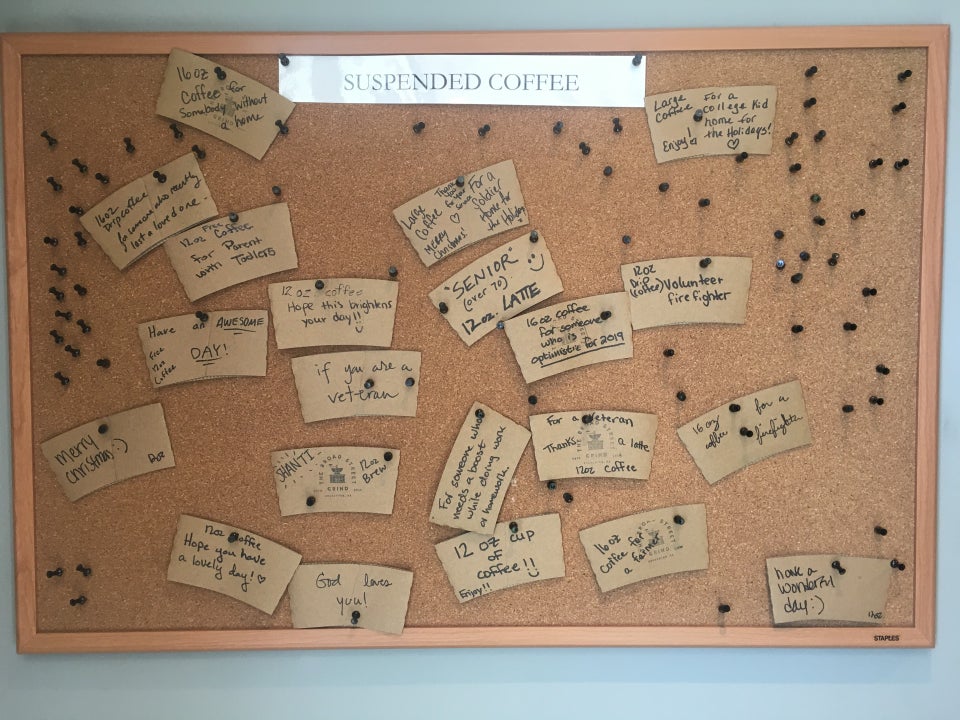 SUSPENDED COFFEE
16oz
Coffee for
Somebody without
a home
Large
Coffee
Enjoy!
For a
college kid
home for
the Holidays!
16oz
Drip coffee
for someone who recently
lost a loved one
Free
12oz Coffee
For Parent
with Todlers
Large
Coffee
Merry
Christmas!
Thank
you
for your
For a
Soldier
Home for
the Holiday
"SENIOR"
(over 70)
12oz. LATTE
12oz
Drip
(coffee)
Volunteer
firefighter
12oz coffee
Hope this brightens
your day!!
16oz coffee
for someone
who is
optimistic for 2019
Have an AWESOME
DAY!
Free
12oz
Coffee
if you are a
veteran
Merry
Christmas! :)
SHANTI
12oz
Brew
THE BROAD STREET
GRIND
For someone who
needs a boost
while doing work
or homework.
For a Veteran
Thanks, a latte
12oz coffee
16oz
coffee
for a
firefighter
12oz coffee
Hope you have
a lovely day!
God loves
you!
12 oz cup
of
coffee!!
Enjoy!!
16oz
Coffee for
a farmer
have a
wonderful
day :)
12oz
STAPLES